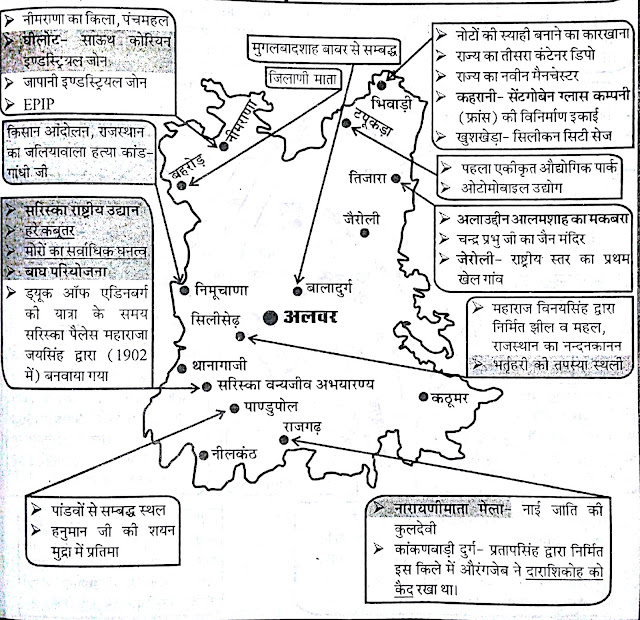 ➢ नीमराणा का किला, पंचमहल
➢ घीलोट- साऊथ कोरियन
इण्डस्ट्रियल जोन
➢ जापानी इण्डस्ट्रियल जोन
➢ EPIP
मुगलबादशाह बाबर से सम्बद्ध
जिलाणी माता
➢ नोटों की स्याही बनाने का कारखाना
➢ राज्य का तीसरा कंटेनर डिपो
➢ राज्य का नवीन मैनचेस्टर
➢ कहरानी- सेंटगोबेन ग्लास कम्पनी
(फ्रांस) की विनिर्माण इकाई
➢ खुशखेड़ा- सिलीकन सिटी सेज
किसान आंदोलन, राजस्थान
का जलियावाला हत्या कांड-
गांधी जी
➢ पहला एकीकृत औद्योगिक पार्क
➢ ओटोमोबाइल उद्योग
➢ सरिस्का राष्ट्रीय उद्यान
➢ हरे कबूतर
➢ मोरों का सर्वाधिक घनत्व
➢ बाघ परियोजना
➢ ड्यूक ऑफ एडिनबर्ग
की यात्रा के समय
सरिस्का पैलेस महाराजा
जयसिंह द्वारा (1902
में) बनवाया गया
➢ अलाउद्दीन आलमशाह का मकबरा
➢ चन्द्र प्रभु जी का जैन मंदिर
➢ जैरोली- राष्ट्रीय स्तर का प्रथम
खेल गांव
➢ महाराज विनयसिंह द्वारा
निर्मित झील व महल,
राजस्थान का नन्दनकानन
➢ भर्तृहरी की तपस्या स्थली
भिवाड़ी
टपूकड़ा
नीमराणा
बहरोड़
तिजारा
जैरोली
निमूचाणा
बालादुर्ग
अलवर
सिलीसेढ़
थानागाजी
सरिस्का वन्यजीव अभयारण्य
कठूमर
पाण्डुपोल
राजगढ़
नीलकंठ
➢ पांडवों से सम्बद्ध स्थल
➢ हनुमान जी की शयन
मुद्रा में प्रतिमा
➢ नारायणीमाता मेला- नाई जाति की
कुलदेवी
➢ कांकणवाड़ी दुर्ग- प्रतापसिंह द्वारा निर्मित
इस किले में औरंगजेब ने दाराशिकोह को
कैद रखा था।